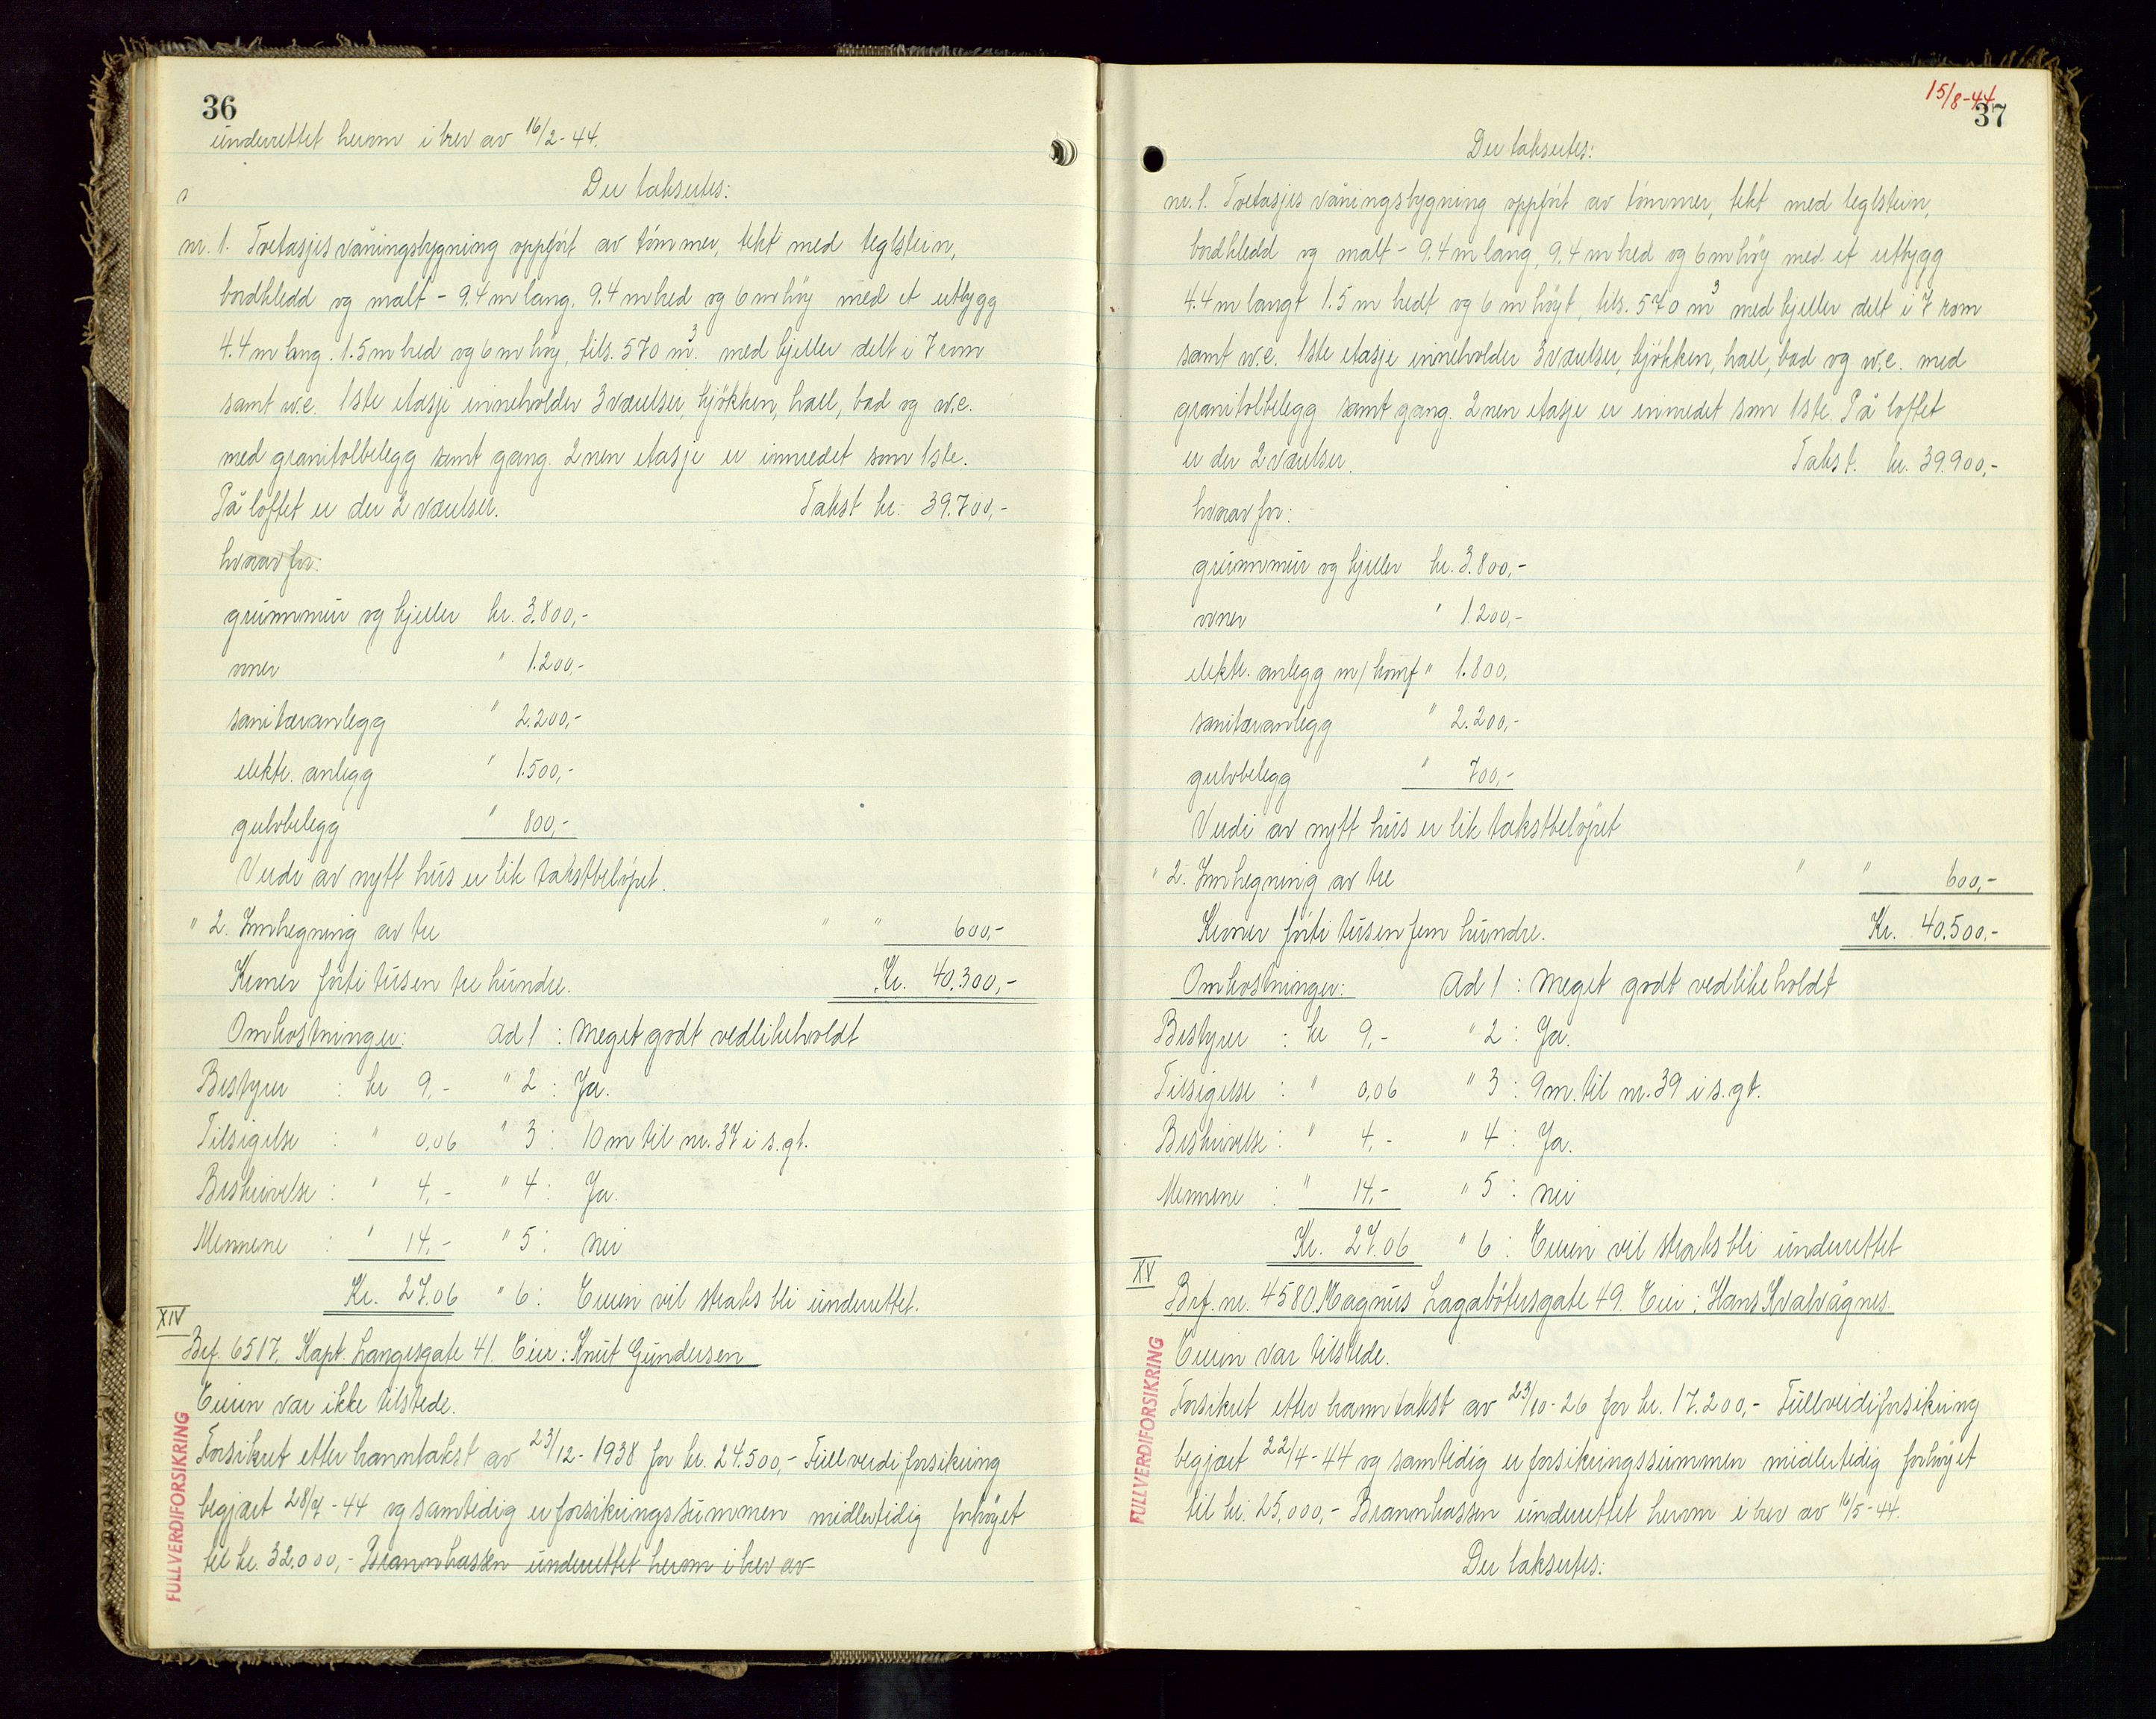 36
underrettet herom i brev av 16/2-44.
Der takseres:
nr. 1. Toetasjes våningsbygning oppført av tømmer, tekt med teglstein,
bordkledd og malt - 9.4 m lang. 9.4 m bred og 6 m høy med et utbygg
4.4 m lang. 1.5 m bred og 6 m høy, tils. 570 m³. med kjeller delt i 7 rom
samt w.c. 1ste etasje inneholder 3 værelser, kjøkken, hall, bad og w.c.
med granitolbelegg samt gang. 2nen etasje er innredet som 1ste.
På loftet er der 2 værelser. Takst kr. 39.700,-
hvorav for:
grunnmur og kjeller kr. 3.800,-
ovner " 1.200,-
sanitæranlegg " 2.200,-
elektr. anlegg " 1.500,-
gulvbelegg " 800,-
Verdi av nytt hus er lik takstbeløpet.
" 2. Innhegning av tre " " 600,-
Kroner førti tusen tre hundre. Kr. 40.300,-
Omkostninger: Ad 1 : Meget godt vedlikeholdt
Bestyrer : kr 9,- " 2 : Ja.
Tilsigelse : " 0,06 " 3 : 10 m til nr. 37 i s. gt.
Beskrivelse : " 4,- " 4 : Ja.
Mennene : " 14,- " 5 : nei
Kr. 27.06 " 6 : Eieren vil straks bli underrettet.
XIV
Brf. 6517. Kapt. Langesgate 41. Eier : Knut Gundersen
Eieren var ikke tilstede.
FULLVERDIFORSIKRING
Forsikret etter branntakst av 23/12-1938 for kr. 24.500,- Fullverdiforsikring
begjært 28/4-44 og samtidig er forsikringssummen midlertidig forhøyet
til kr. 32.000,- Brannkassen underrettet herom i brev av
15/8-44
37
Der takseres:
nr. 1. Toetasjes våningsbygning oppført av tømmer, tekt med teglstein,
bordkledd og malt - 9.4 m lang, 9.4 m bred og 6 m høy med et utbygg
4.4 m langt 1.5 m bredt og 6 m høyt, tils. 570 m³ med kjeller delt i 7 rom
samt w.c. 1ste etasje inneholder 3 værelser, kjøkken, hall, bad og w.c. med
granitolbelegg samt gang. 2nen etasje er innredet som 1ste. På loftet
er der 2 værelser. Takst. kr. 39.900,-
hvorav for:
grunnmur og kjeller kr. 3.800,-
ovner " 1.200,-
elektr. anlegg m/komf " 1.800,
sanitæranlegg " 2.200,-
gulvbelegg " 700,-
Verdi av nytt hus er lik takstbeløpet
" 2. Innhegning av tre " " 600,-
Kroner førti tusen fem hundre. Kr. 40.500,-
Omkostninger: Ad 1 : Meget godt vedlikeholdt
Bestyrer : kr 9,- " 2 : Ja.
Tilsigelse : " 0,06 " 3 : 9 m. til nr. 39 i s. gt.
Beskrivelse : " 4,- " 4 : Ja.
Mennene : " 14,- " 5 : nei
Kr. 27.06 " 6 : Eieren vil straks bli underrettet
XV
Brf. nr. 4580. Magnus Lagabøtersgate 49. Eier : Hans Kvalvågnes.
Eieren var tilstede.
FULLVERDIFORSIKRING
Forsikret etter branntakst av 23/10-26 for kr. 17.200,- Fullverdiforsikring
begjært 22/4-44 og samtidig er forsikringssummen midlertidig forhøyet
til kr. 25,000,- Brannkassen underrettet herom i brev av 16/5-44.
Der takseres: